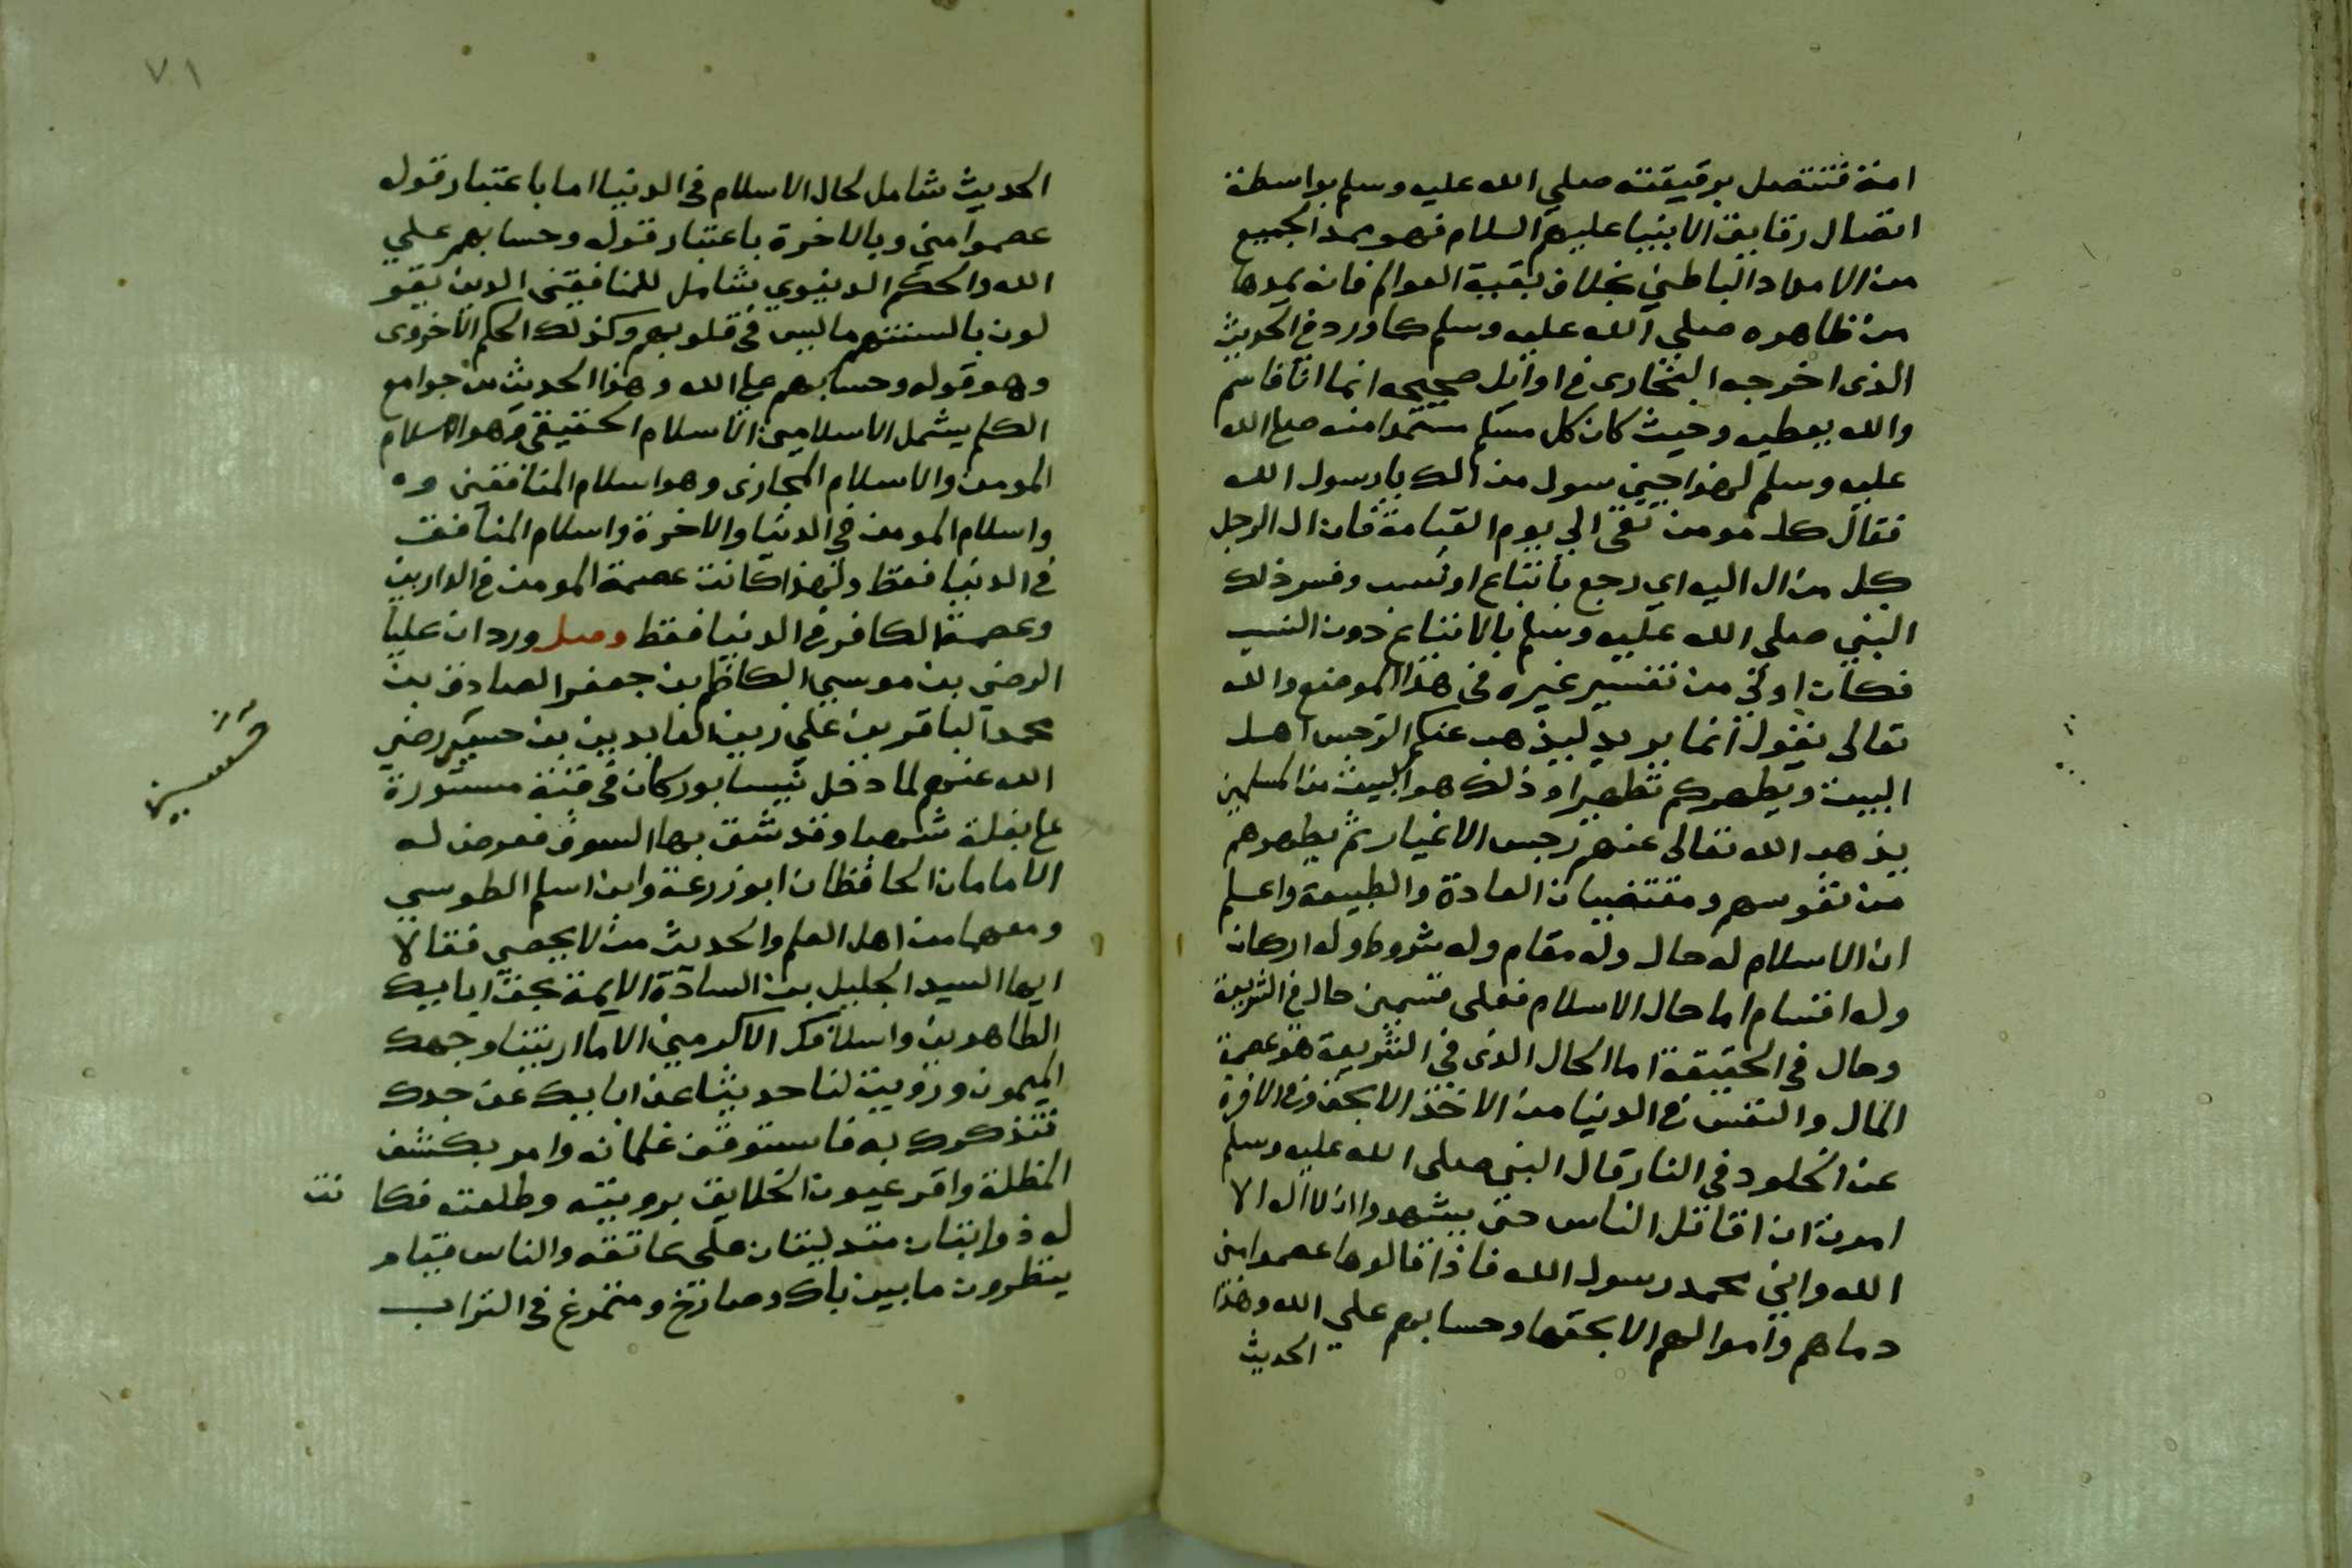 امته فتتصل برقيقته صلي الله عليه وسلم بواسطة
اتصال رقايق الانبيا عليهم السلام فهو ممد الجميع
من الامداد الباطني بخلاف بقية العوالم فانه يمدها
من ظاهره صلي الله عليه وسلم كما ورد في الحديث
الذي اخرجه البخاري في اوايل صحيحه انما انا قاسم
والله يعطيه وحيث كان كل مسلم مستمدا منه صلي الله
عليه وسلم لهذا حين سول من الك يا رسول الله
فقال كل مومن تقي الي يوم القيامة فان ال الرجل
كل من ال اليه اي رجع باتباع او نسب وفسر ذلك
النبي صلي الله عليه وسلم بالاتباع دون النسب
فكان اولي من تفسير غيره في هذا الموضع والله
تعالي يقول انما يريد ليذهب عنكم الرجس اهل
البيت ويطهركم تطهيرا وذلك هو البيت من المسلمين
يذهب الله تعالي عنهم رجس الاغيار ثم يطهرهم
من نفوسهم ومقتضيات العادة والطبيعة واعلم
ان الاسلام له حال وله مقام وله شروط وله اركان
وله اقسام اما حال الاسلام فعلي قسمين حال في الشريعة
وحال في الحقيقة اما الحال الذي في الشريعة هو عصمة
المال والنفس في الدنيا من الاخذ الا بحق وفي الاخرة
عن الخلود في النار قال النبي صلي الله عليه وسلم
امرت ان اقاتل الناس حتي يشهدوا ان لا اله الا
الله واني محمد رسول الله فاذا قالوها عصموا مني
دماهم واموالهم الا بحقها وحسابهم علي الله وهذا
الحديث
٧١
الحديث شامل لحال الاسلام في الدنيا اما باعتبار قوله
عصموا مني وبالاخرة باعتبار قوله وحسابهم علي
الله والحكم الدنيوي شامل للمنافقين الذين يقو
لون بالسنتهم ما ليس في قلوبهم وكذلك الحكم الاخروي
وهو قوله وحسابهم علي الله وهذا الحديث من جوامع
الكلم يشمل الاسلامين الاسلام الحقيقي وهو الاسلام
المومن والاسلام المجازي وهو اسلام المنافقين
واسلام المومن في الدنيا والاخرة واسلام المنافق
في الدنيا فقط ولهذا كانت عصمة المومن في الدارين
وعصمة الكافر في الدنيا فقط وصل ورد ان عليا
الرضي بن موسي الكاظم بن جعفر الصادق بن
محمد الباقر بن علي زين العابدين بن حسين رضي
الله عنهم لما دخل نيسابور كان في قبة مستورة
علي بغلة شهبا وقد شق بها السوق فعرض له
الامامان الحافظان ابو زرعة وابن اسلم الطوسي
ومعهما من اهل العلم والحديث من لا يحصي فقالا
ايها السيد الجليل بن السادة الايمة بحق ابايك
الطاهرين واسلافك الاكرمين الا ما اريتنا وجهك
الميمون ورويت لنا حديثا عن ابايك عن جدك
نتذكرك به فاستوقف غلمانه وامر بكشف
المظلة واقر عيون الخلايق برويته وطلعته فكا نت
له ذوابتان متدليتان علي عاتقه والناس قيام
ينظرون ما بين باك وصارخ ومتمرغ في التراب
حسين